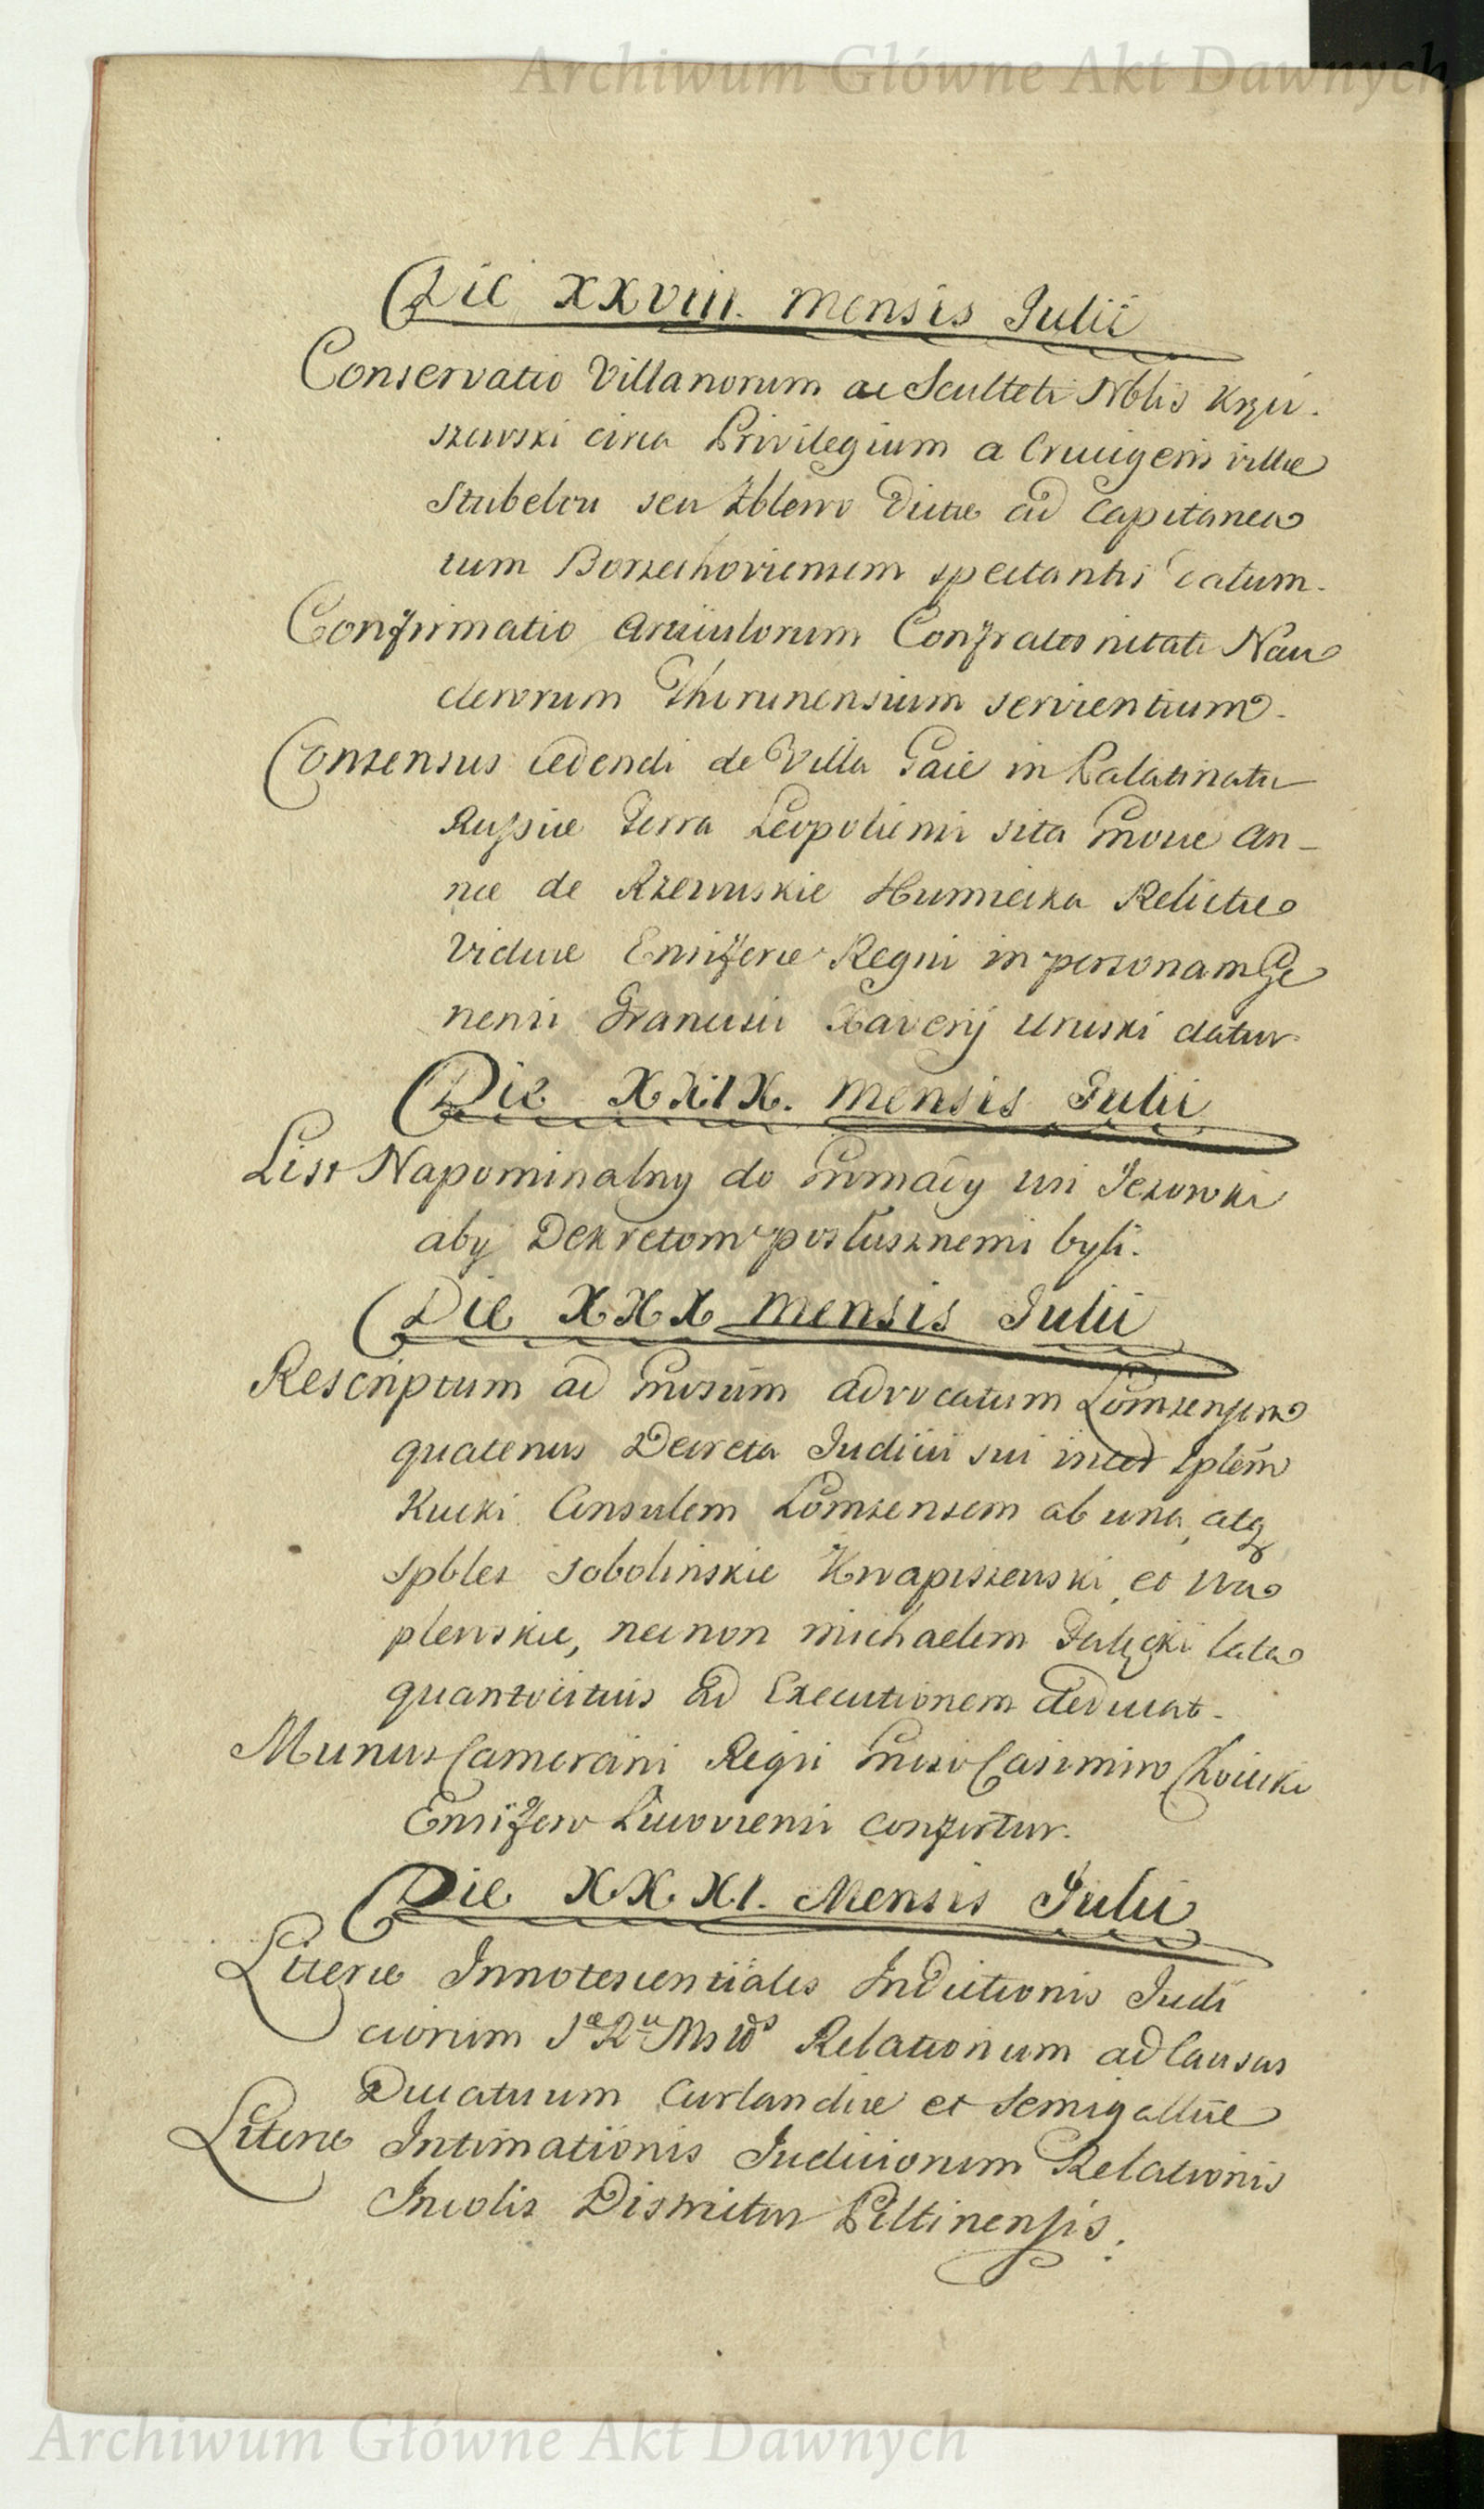 Archiwum Główne Akt Dawnych
Die XXVIII. Mensis Julii
Conservatio Villanorum ac Sculteti Nblis Krzu.
szewski circa Privilegium a Crucigeris villæ
Stubelou seu Zblewo dictæ ad Capitanea
tum Borzechoviensem spectantis datum.
Confirmatio Articulorum Confraternitati Nau
clerorum Thorunensium servientium.
Consensus cedendi de Villa Gaie in Palatinatu
Russiæ Terra Leopoliensi sita An-
næ de Rzewuskie Humiecka Relictæ
Viduæ Ensiferæ Regni in personam Ge
nerosi Francisci Xaverij Uruski datur
Die XXIX. Mensis Julii
List Napominalny do wsi Jezowki
aby Dekretom posłusznemi byli.
Die XXX Mensis Julii
Rescriptum ad advocatum Łomzensem
quatenus Decreta Judicii sui inter
Kucki Consulem Łomzensem ab una, atq
spbles Sobolinskie Kwapiszewski, et Wa
plewskie, necnon Michaelem lata
quantocitius ad Executionem deducat.
Munus Camerarii Regii Casimiro Choiecki
Ensifero confertur.
Die XXXI. Mensis Julii
Litteræ Innotescentiales Indictionis Judi
ciorum Relationum ad Causas
Ducatuum Curlandiæ et Semigalliæ
Literæ Intimationis Judiciorum Relationis
Incolis Districtus Piltinensis.
Archiwum Główne Akt Dawnych